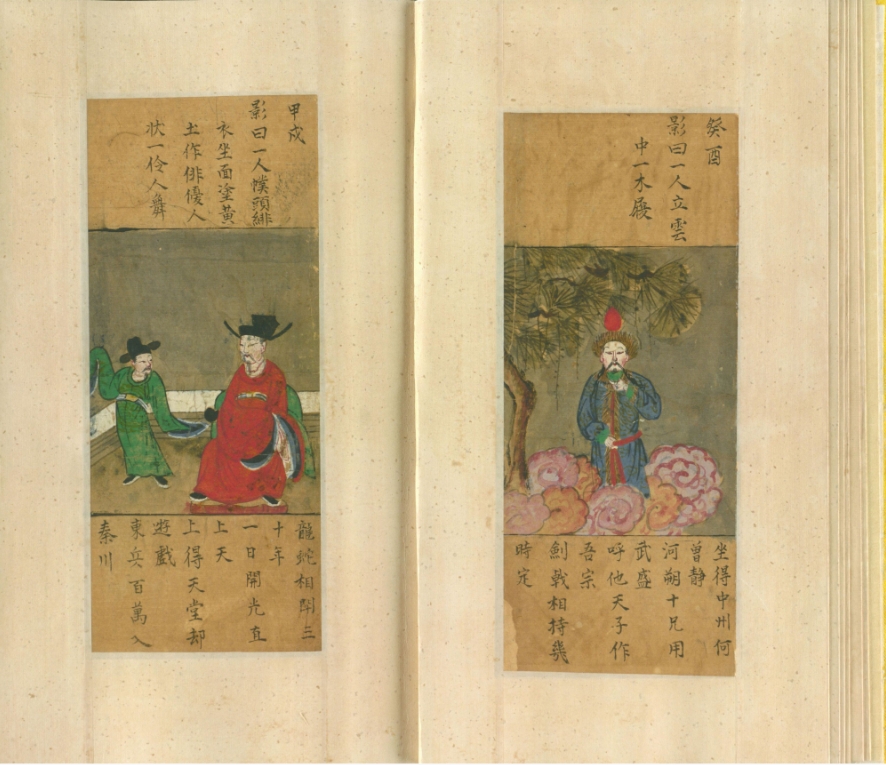 癸酉
影曰一人立雲
中一木屐
坐得中州何
曾靜
河朔十兄用
武盛
呼他天子作
吾宗
劍戟相持幾
時定
甲戌
影曰一人幞頭緋
衣坐面塗黃
土作俳優人
狀一伶人舞
龍蛇相鬥三
十年
一日開光直
上天
上得天堂却
遊戲
東兵百萬入
秦川